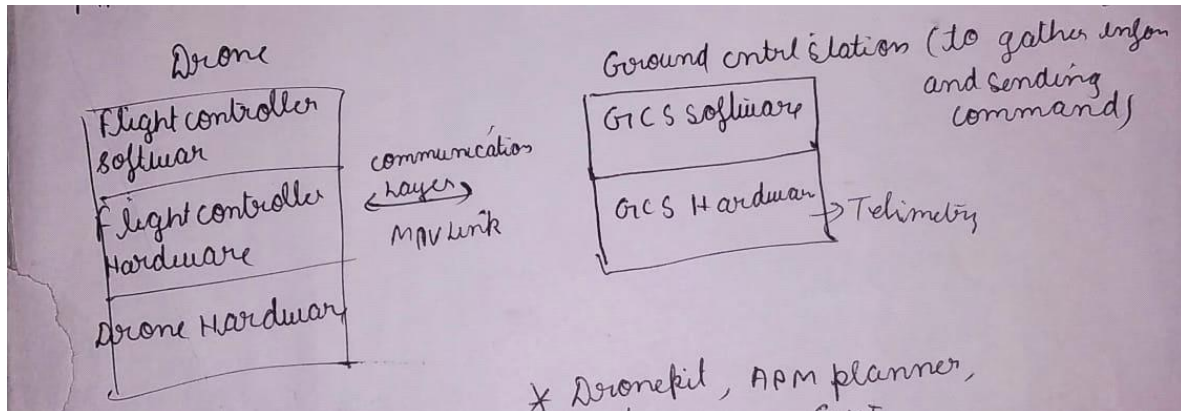 Drone
Flight controller
softwar
Flight controller
Hardware
Drone Hardwar
communication
Layer
MAVLink
Ground cntrl station (to gather infon
and sending
command)
GCS Software
GCS Hardwar
Telimetry
* Dronekit, APM planner,